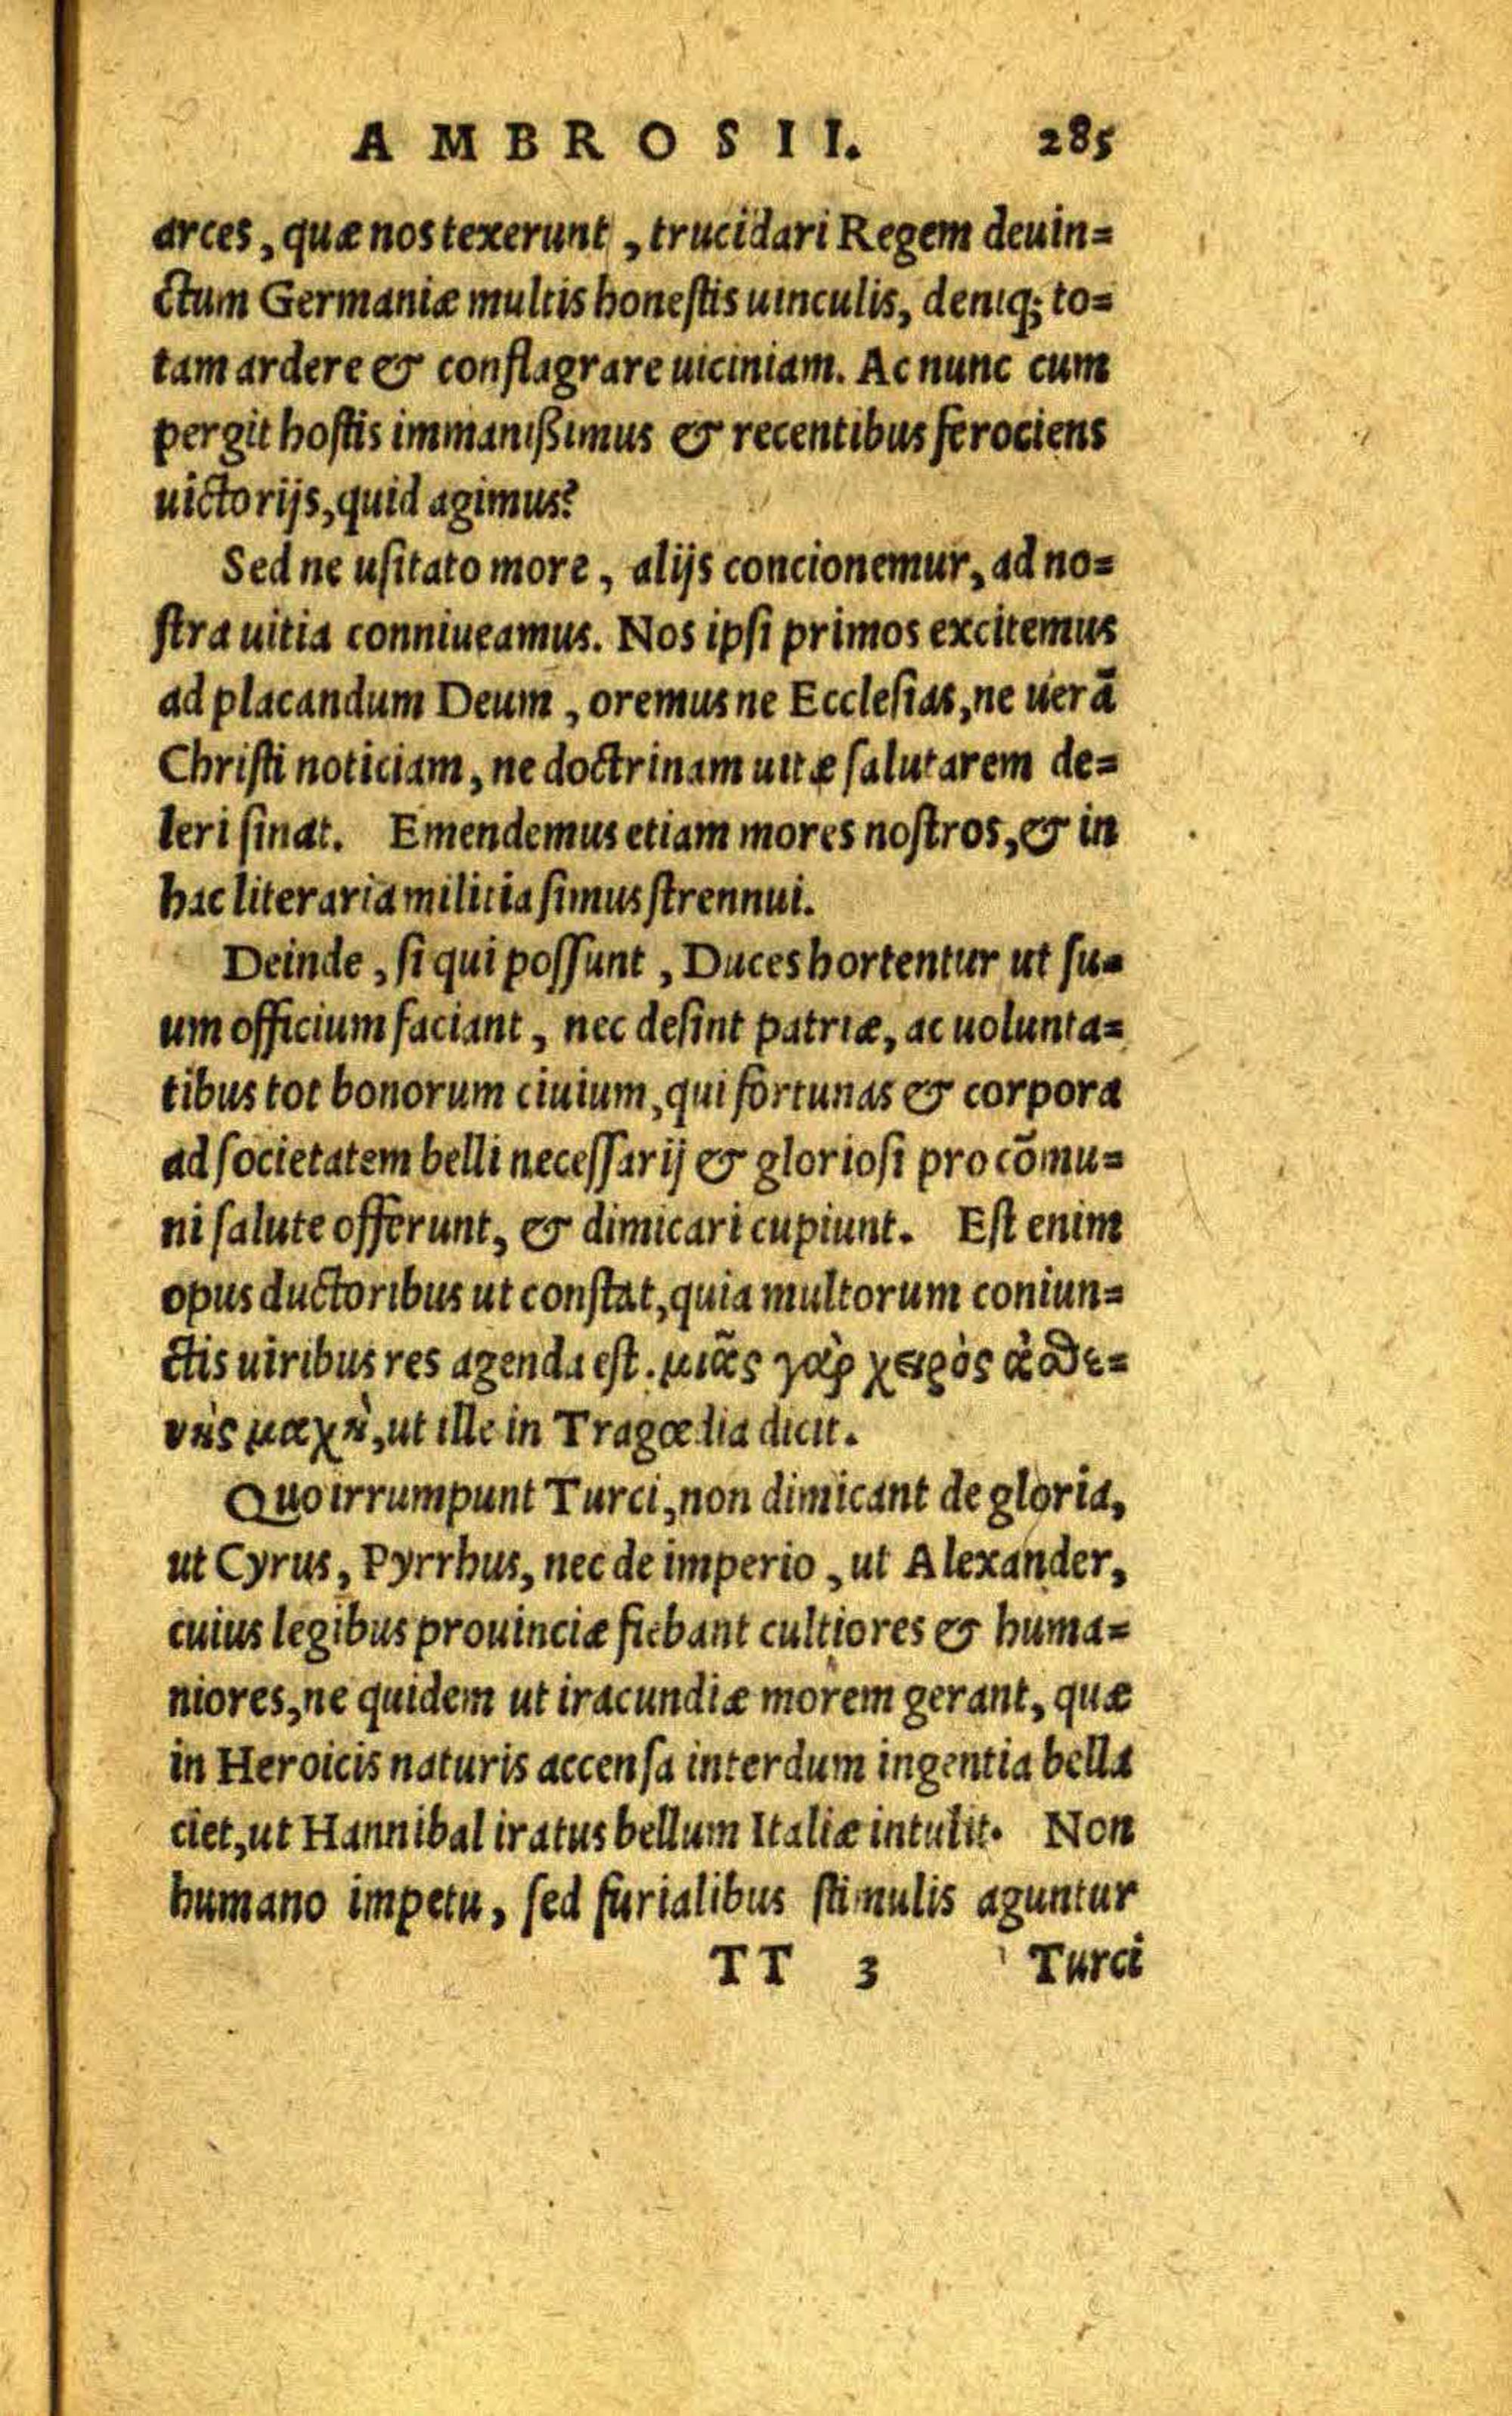 AMBROSII. 285
arces, quæ nos texerunt, trucidari Regem deuin=
ctum Germaniæ multis honeſtis uinculis, deniq; to=
tam ardere & conflagrare uiciniam. Ac nunc cum
pergit hoſtis immanißimus & recentibus ferociens
uictorijs, quid agimus?
Sed ne uſitato more, alijs concionemur, ad no=
ſtra uitia conniueamus. Nos ipſi primos excitemus
ad placandum Deum, oremus ne Eccleſias, ne uerã
Chriſti noticiam, ne doctrinam uitæ ſalutarem de=
leri ſinat. Emendemus etiam mores noſtros, & in
hac literaria militia ſimus ſtrennui.
Deinde, ſi qui poſſunt, Duces hortentur ut ſu=
um officium faciant, nec deſint patriæ, ac uolunta=
tibus tot bonorum ciuium, qui fortunas & corpora
ad ſocietatem belli neceſſarij & glorioſi pro cõmu=
ni ſalute offerunt, & dimicari cupiunt. Eſt enim
opus ductoribus ut conſtat, quia multorum coniun=
ctis uiribus res agenda eſt. μιᾶς γὰρ χειρὸς ἀσθε=
νὴς μαχὴ, ut ille in Tragœdia dicit.
Quo irrumpunt Turci, non dimicant de gloria,
ut Cyrus, Pyrrhus, nec de imperio, ut Alexander,
cuius legibus prouinciæ fiebant cultiores & huma=
niores, ne quidem ut iracundiæ morem gerant, quæ
in Heroicis naturis accenſa interdum ingentia bella
ciet, ut Hannibal iratus bellum Italiæ intulit. Non
humano impetu, ſed furialibus ſtimulis aguntur
TT 3 Turci